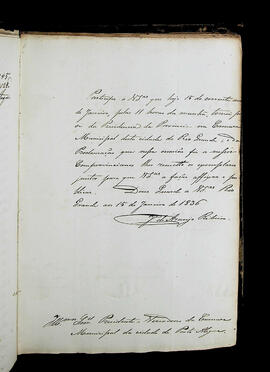 Participo a VSas que hoje 15 do corrente mez
de Janeiro, pelas 11 horas da manhã, tomei pos-
se da Presidencia da Provincia em Camara
Municipal desta cidade do Rio Grande; e da
Proclamação que nessa occasião fiz a nossos
Comprovincianos lhes remetto os exemplares
juntos para que VSas a fação affixar e pu-
blicar. Deos Guarde a VSas Rio
Grande aos 15 de Janeiro de 1836
J. de Araujo Ribeiro
Senres Presidente e Vereadores da Camara
Municipal da cidade de Porto Alegre